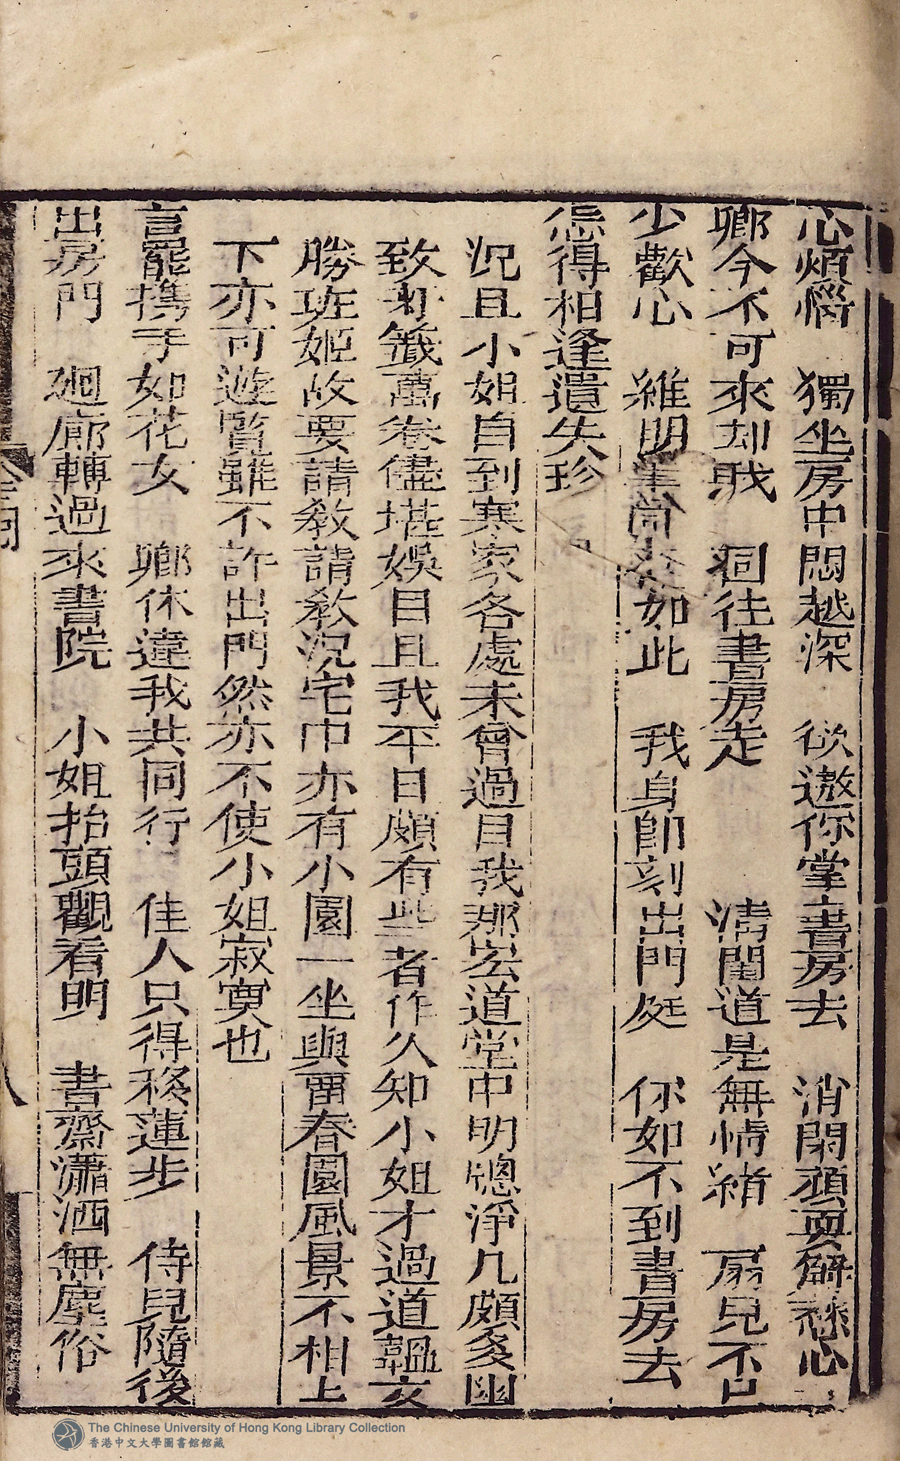 心煩惱　獨坐房中悶越深　欲邀你掌書房去　消閑頑耍解愁心
鄉今不可來却我　同往書房走　清閨道是無情緒　扇兒不
少歡心　維明　如此　我身即刻出門庭　你如不到書房去
怎得相逢遺失珍
況且小姐自到寒家各處未曾過目我那宏道堂中明窻淨几頗多幽
致牙籤萬卷儘堪娛目且我平日頗有些著作久知小姐才過道韞文
勝班姬故要請教請教況宅中亦有小園一坐與畱春園風景不相上
下亦可遊覽雖不許出門然亦不使小姐寂寞也
言罷攜手如花女　鄉休違我共同行　佳人只得移蓮步　侍兒隨後
出房門　廻廊轉過來書院　小姐抬頭觀看明　書齋瀟洒無塵俗
八
The Chinese University of Hong Kong Library Collection
香港中文大學圖書館館藏